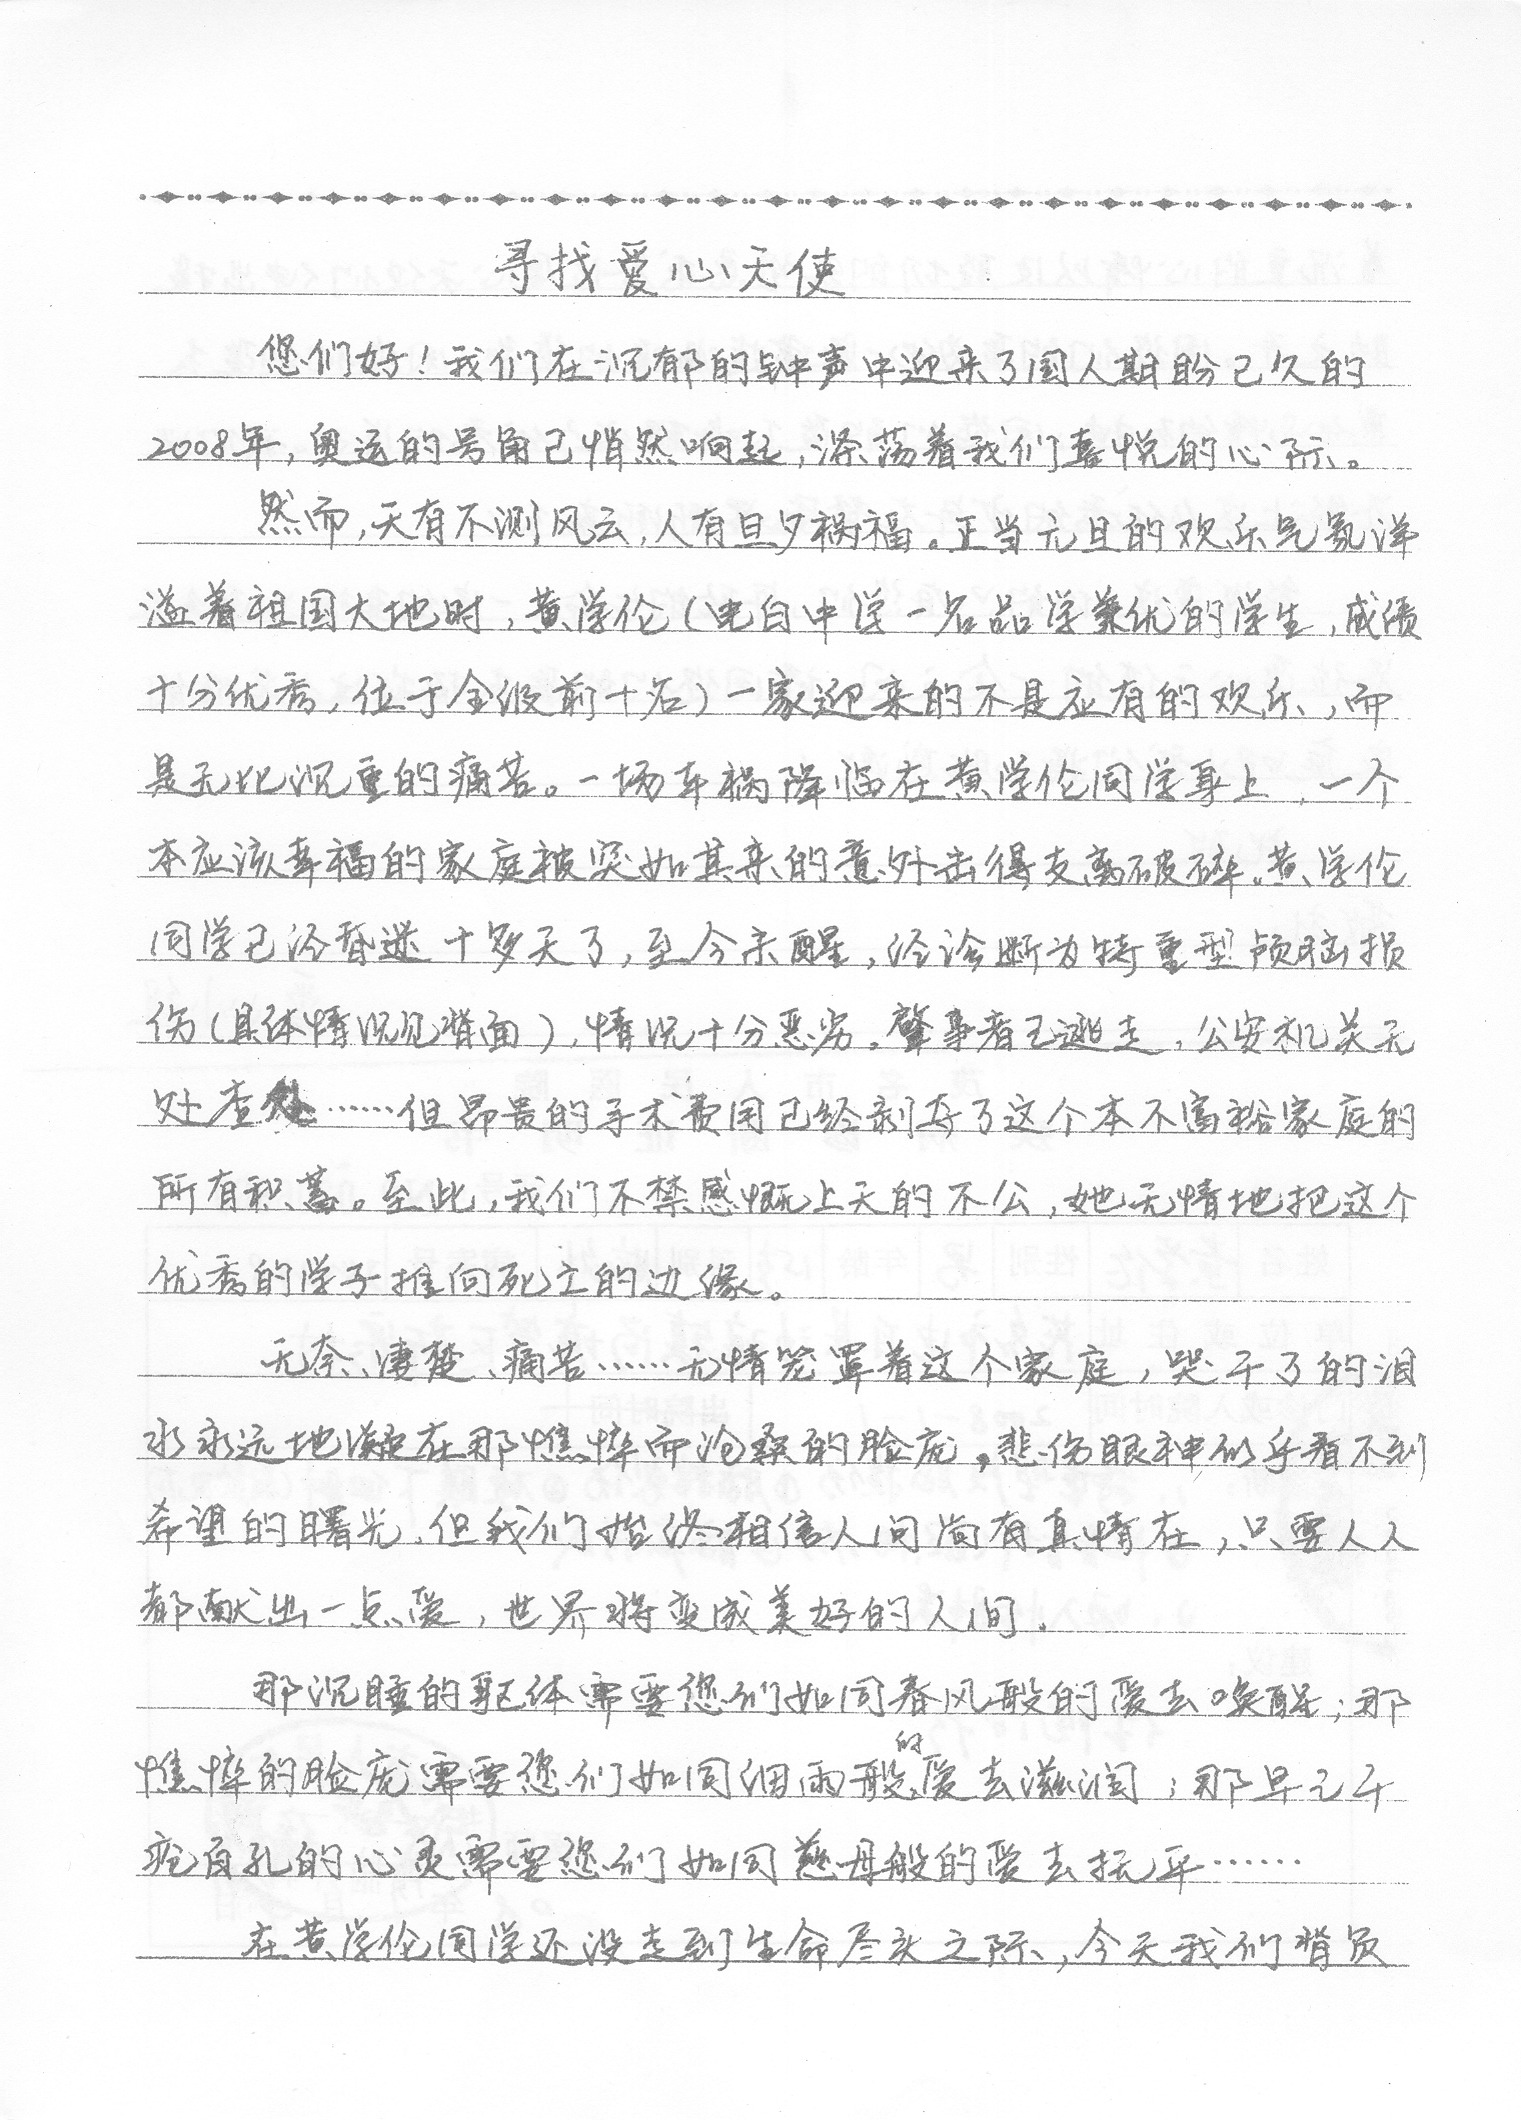 寻找爱心天使
您们好！我们在沉郁的钟声中迎来了国人期盼已久的
2008年，奥运的号角已悄然响起，涤荡着我们喜悦的心际。
然而，天有不测风云，人有旦夕祸福。正当元旦的欢乐气氛洋
溢着祖国大地时，黄学伦（电白中学一名品学兼优的学生，成绩
十分优秀，位于全级前十名）一家迎来的不是应有的欢乐，而
是无比沉重的痛苦。一场车祸降临在黄学伦同学身上，一个
本应该幸福的家庭被突如其来的意外击得支离破碎。黄学伦
同学已经昏迷十多天了，至今未醒，经诊断为特重型颅脑损
伤（具体情况见背面），情况十分恶劣。肇事者已逃走，公安机关无
处查处……但昂贵的手术费用已经剥夺了这个本不富裕家庭的
所有积蓄。至此，我们不禁感慨上天的不公，她无情地把这个
优秀的学子推向死亡的边缘。
无奈、凄楚、痛苦……无情笼罩着这个家庭，哭干了的泪
水永远地凝在那憔悴而沧桑的脸庞，悲伤眼神似乎看不到
希望的曙光，但我们始终相信人间尚有真情在，只要人人
都献出一点爱，世界将变成美好的人间。
那沉睡的躯体需要您们如同春风般的爱去唤醒；那
憔悴的脸庞需要您们如同细雨般的爱去滋润；那早已千
疮百孔的心灵需要您们如同慈母般的爱去抚平……
在黄学伦同学还没走到生命尽头之际，今天我们背负